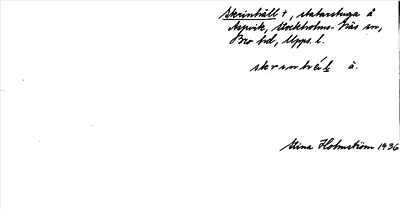 Skrinhäll +, statarstuga å
Aspvik, Stockholms-Näs sn,
Bro hd, Upps. l.
à.
Stina Holmström 1936